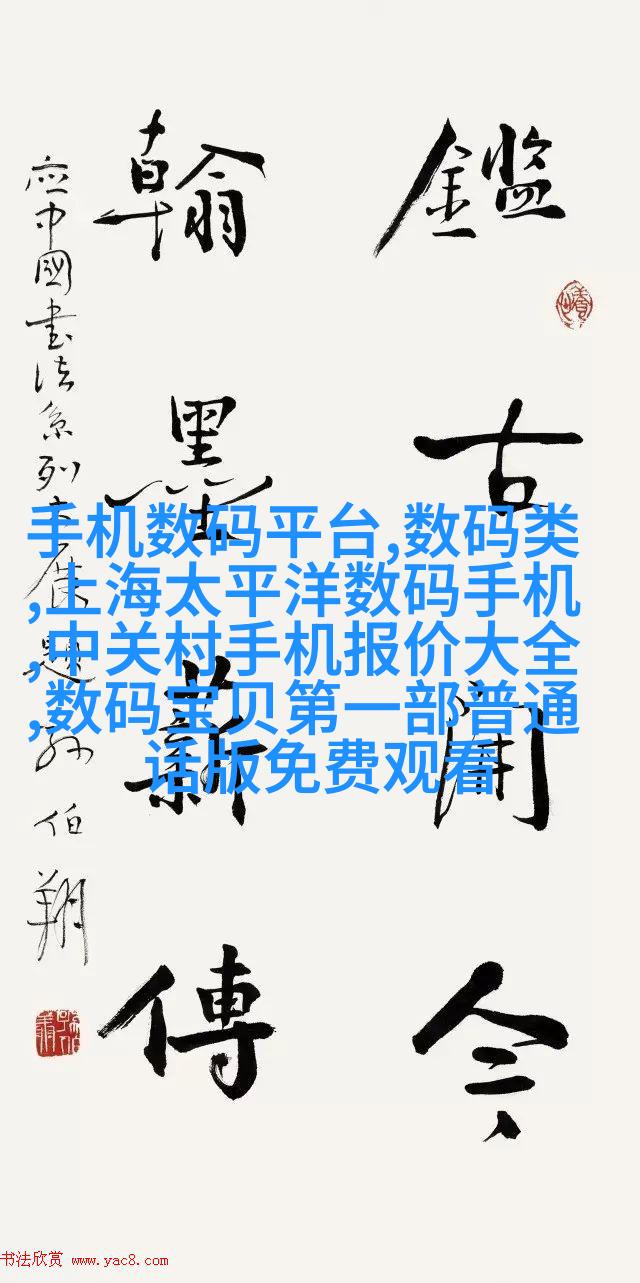 鑑古開今
翰墨薪傳
应中國書法系列大展題 孙伯翔
手机数码平台,数码类
,上海太平洋数码手机
,中关村手机报价大全
,数码宝贝第一部普通
话版免费观看
书法欣赏 www.yac8.com